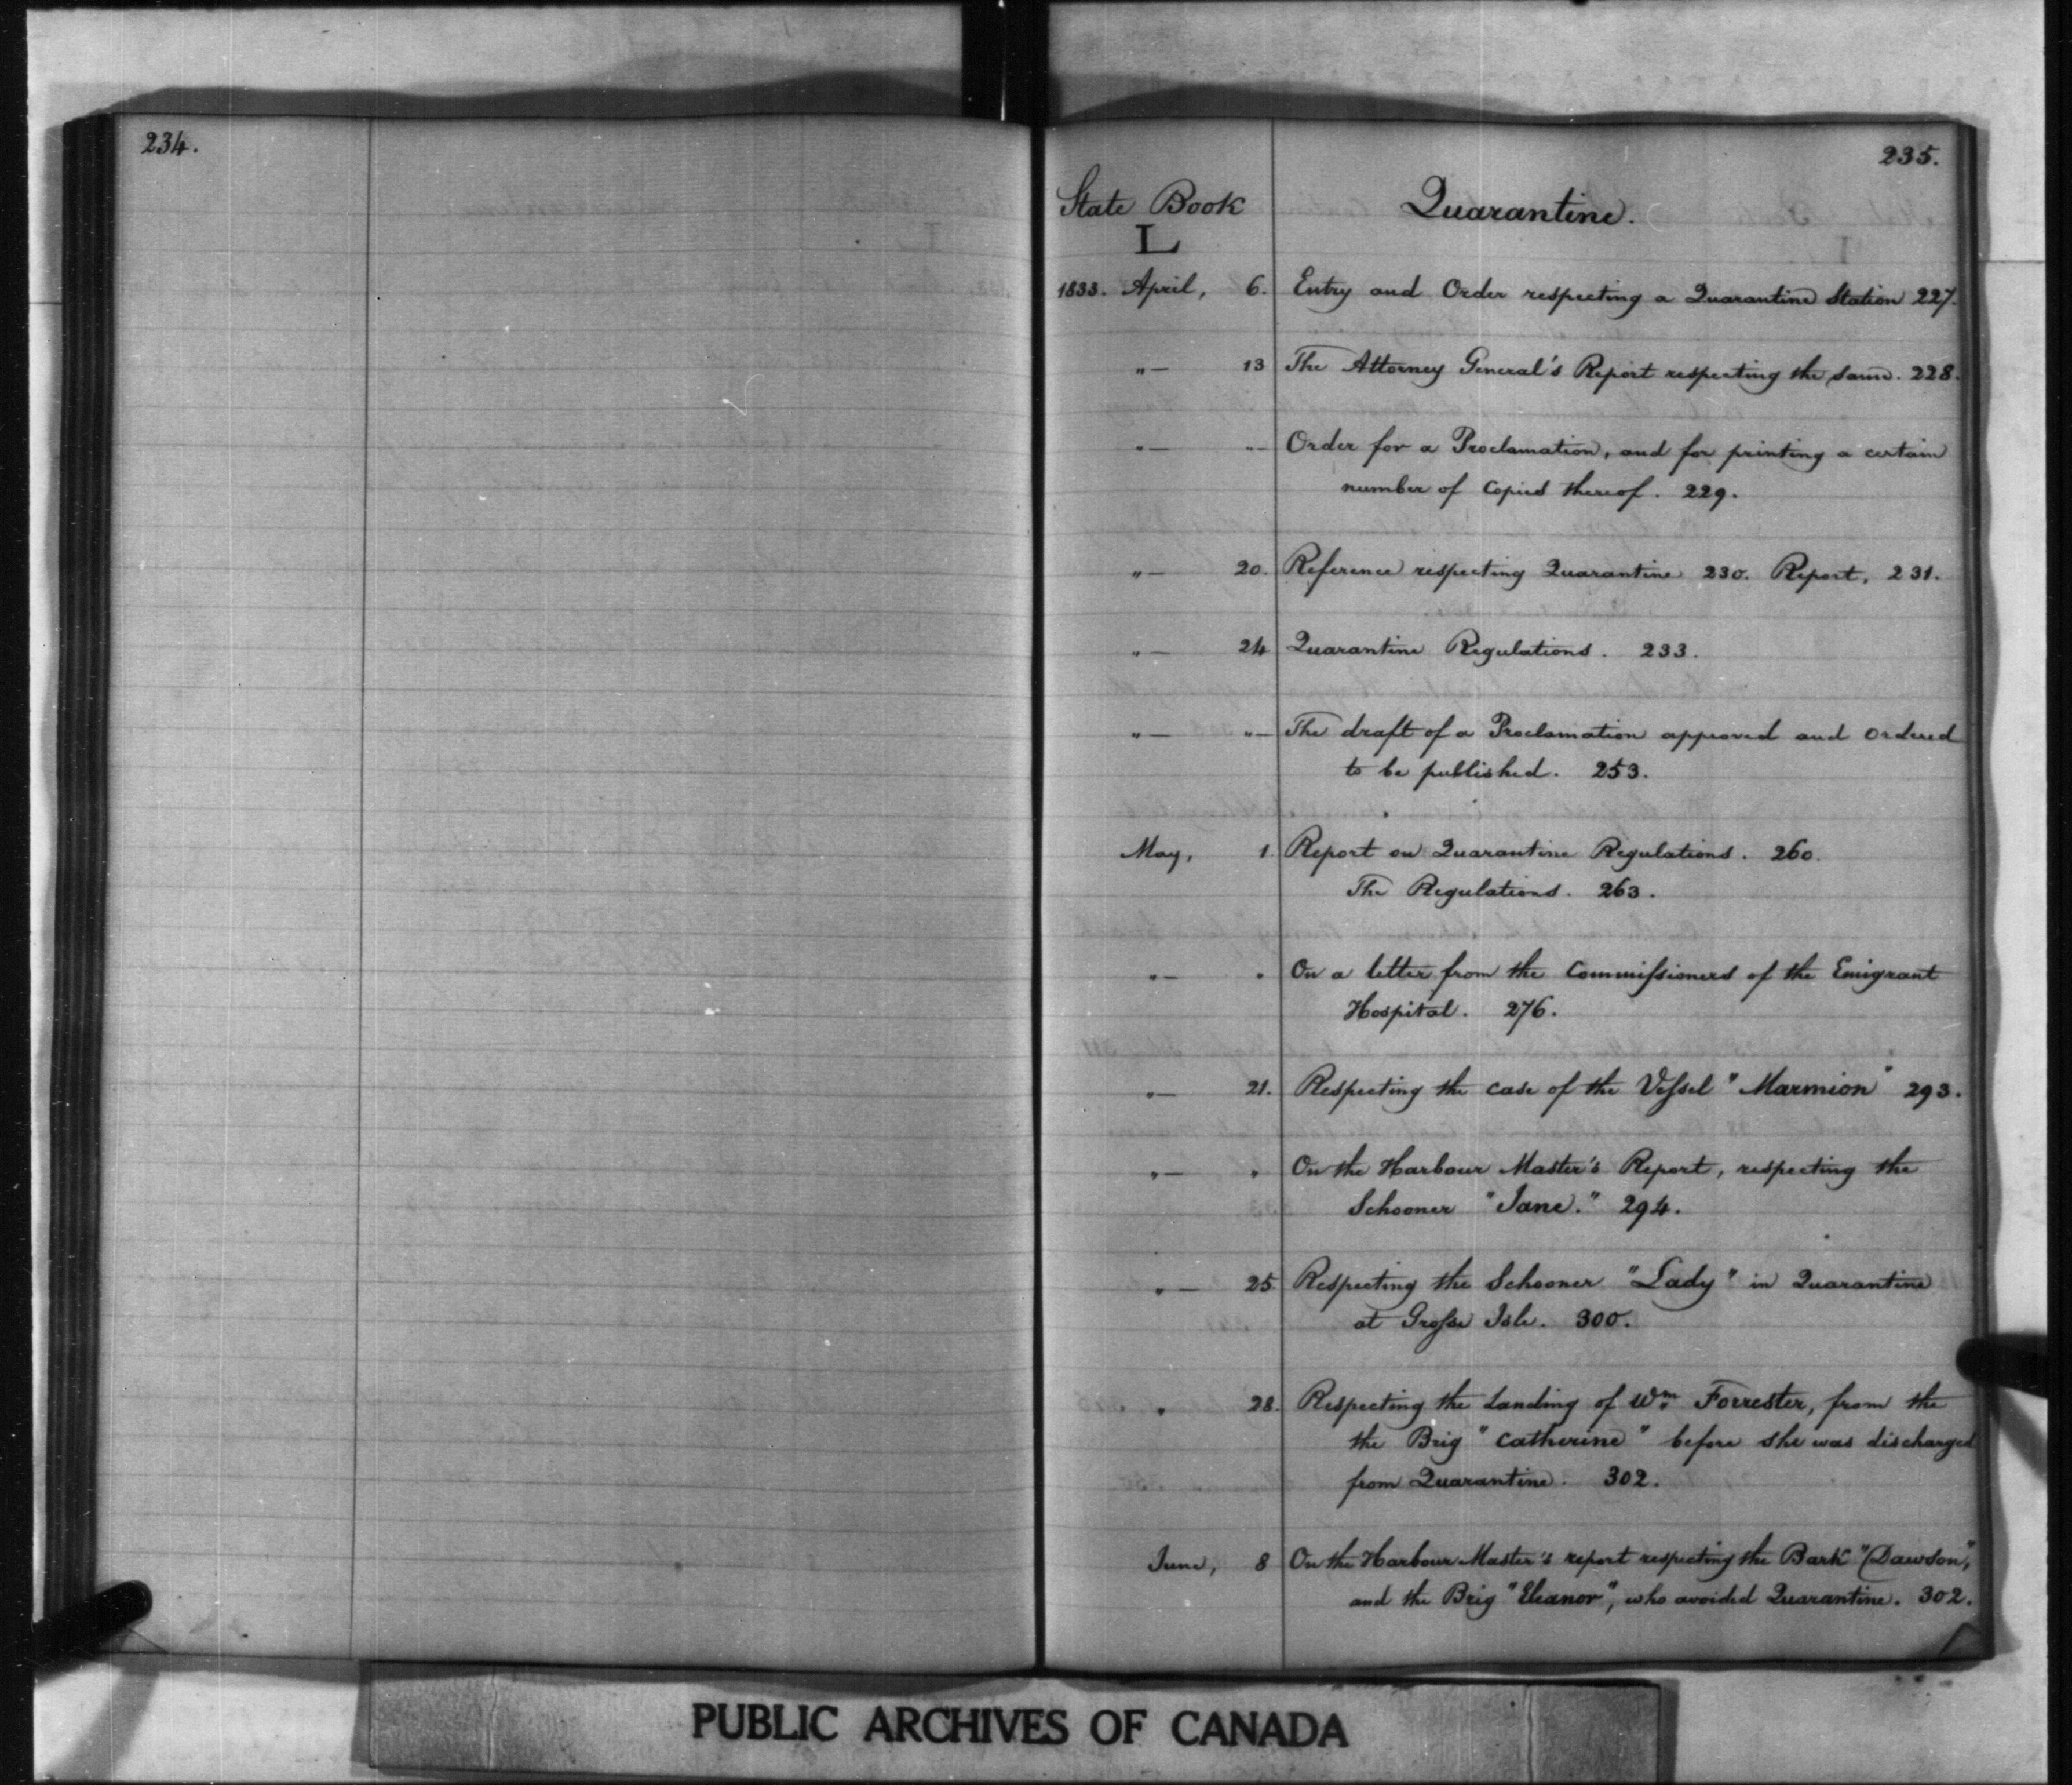 234.
235.
State Book
L
Quarantine.
1833. April, 6. Entry and Order respecting a Quarantine Station 227.
"— 13 The Attorney General's Report respecting the same. 228.
"— "— Order for a Proclamation, and for printing a certain
number of Copies thereof. 229.
"— 20. Reference respecting Quarantine 230. Report, 231.
"— 24 Quarantine Regulations. 233.
"— "— The draft of a Proclamation approved and ordered
to be published. 253.
May, 1. Report on Quarantine Regulations. 260.
The Regulations. 263.
"— " On a letter from the Commissioners of the Emigrant
Hospital. 276.
"— 21. Respecting the case of the Vessel "Marmion" 293.
"— " On the Harbour Master's Report, respecting the
Schooner "Jane." 294.
"— 25. Respecting the Schooner "Lady" in Quarantine
at Grosse Isle. 300.
" 28. Respecting the Landing of Wm. Forrester, from the
the Brig "Catherine" before she was discharged
from Quarantine. 302.
June, 8 On the Harbour Master's report respecting the Bark "Dawson",
and the Brig "Eleanor", who avoided Quarantine. 302.
PUBLIC ARCHIVES OF CANADA